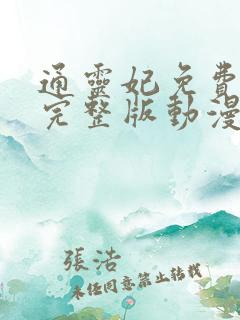 通靈妃免費
完整版動漫
張浩
未经同意禁止转载